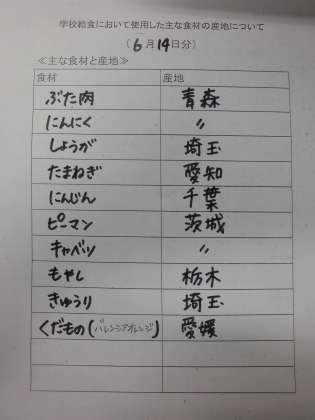 学校給食において使用した主な食材の産地について
(6月14日分)
≪主な食材と産地≫
食材 産地
ぶた肉 青森
にんにく 〃
しょうが 埼玉
たまねぎ 愛知
にんじん 千葉
ピーマン 茨城
キャベツ 〃
もやし 栃木
きゅうり 埼玉
くだもの(バレンシアオレンジ) 愛媛